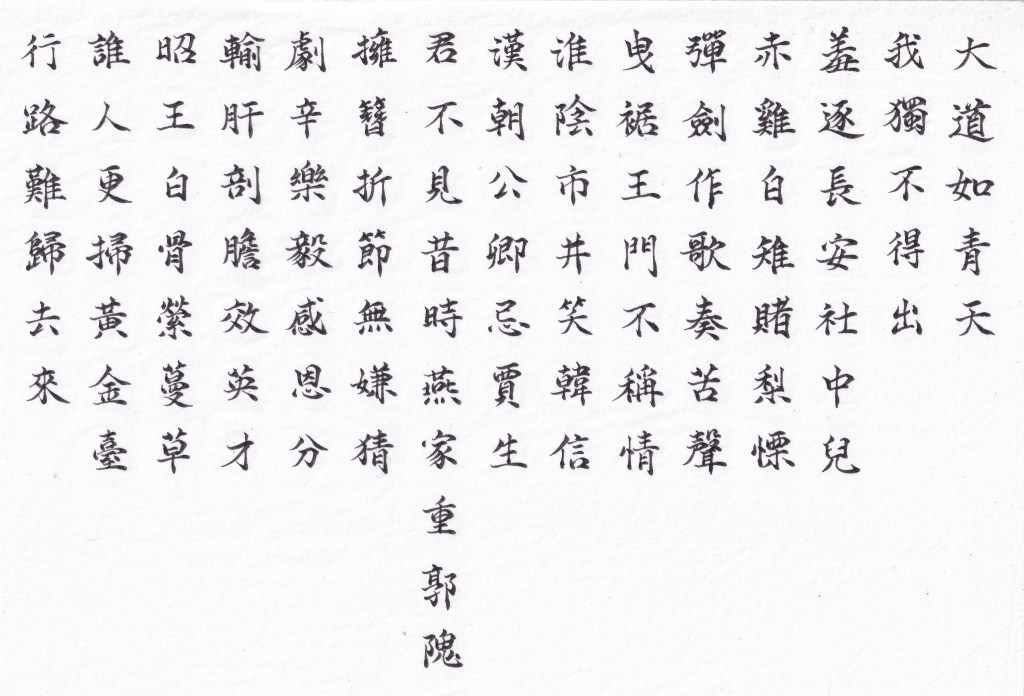 大道如青天
我獨不得出
羞逐長安社中兒
赤雞白雉賭梨慄
彈劍作歌奏苦聲
曳裾王門不稱情
淮陰市井笑韓信
漢朝公卿忌賈生
君不見昔時燕家重郭隗
擁篲折節無嫌猜
劇辛樂毅感恩分
輸肝剖膽效英才
昭王白骨縈蔓草
誰人更掃黃金臺
行路難歸去來